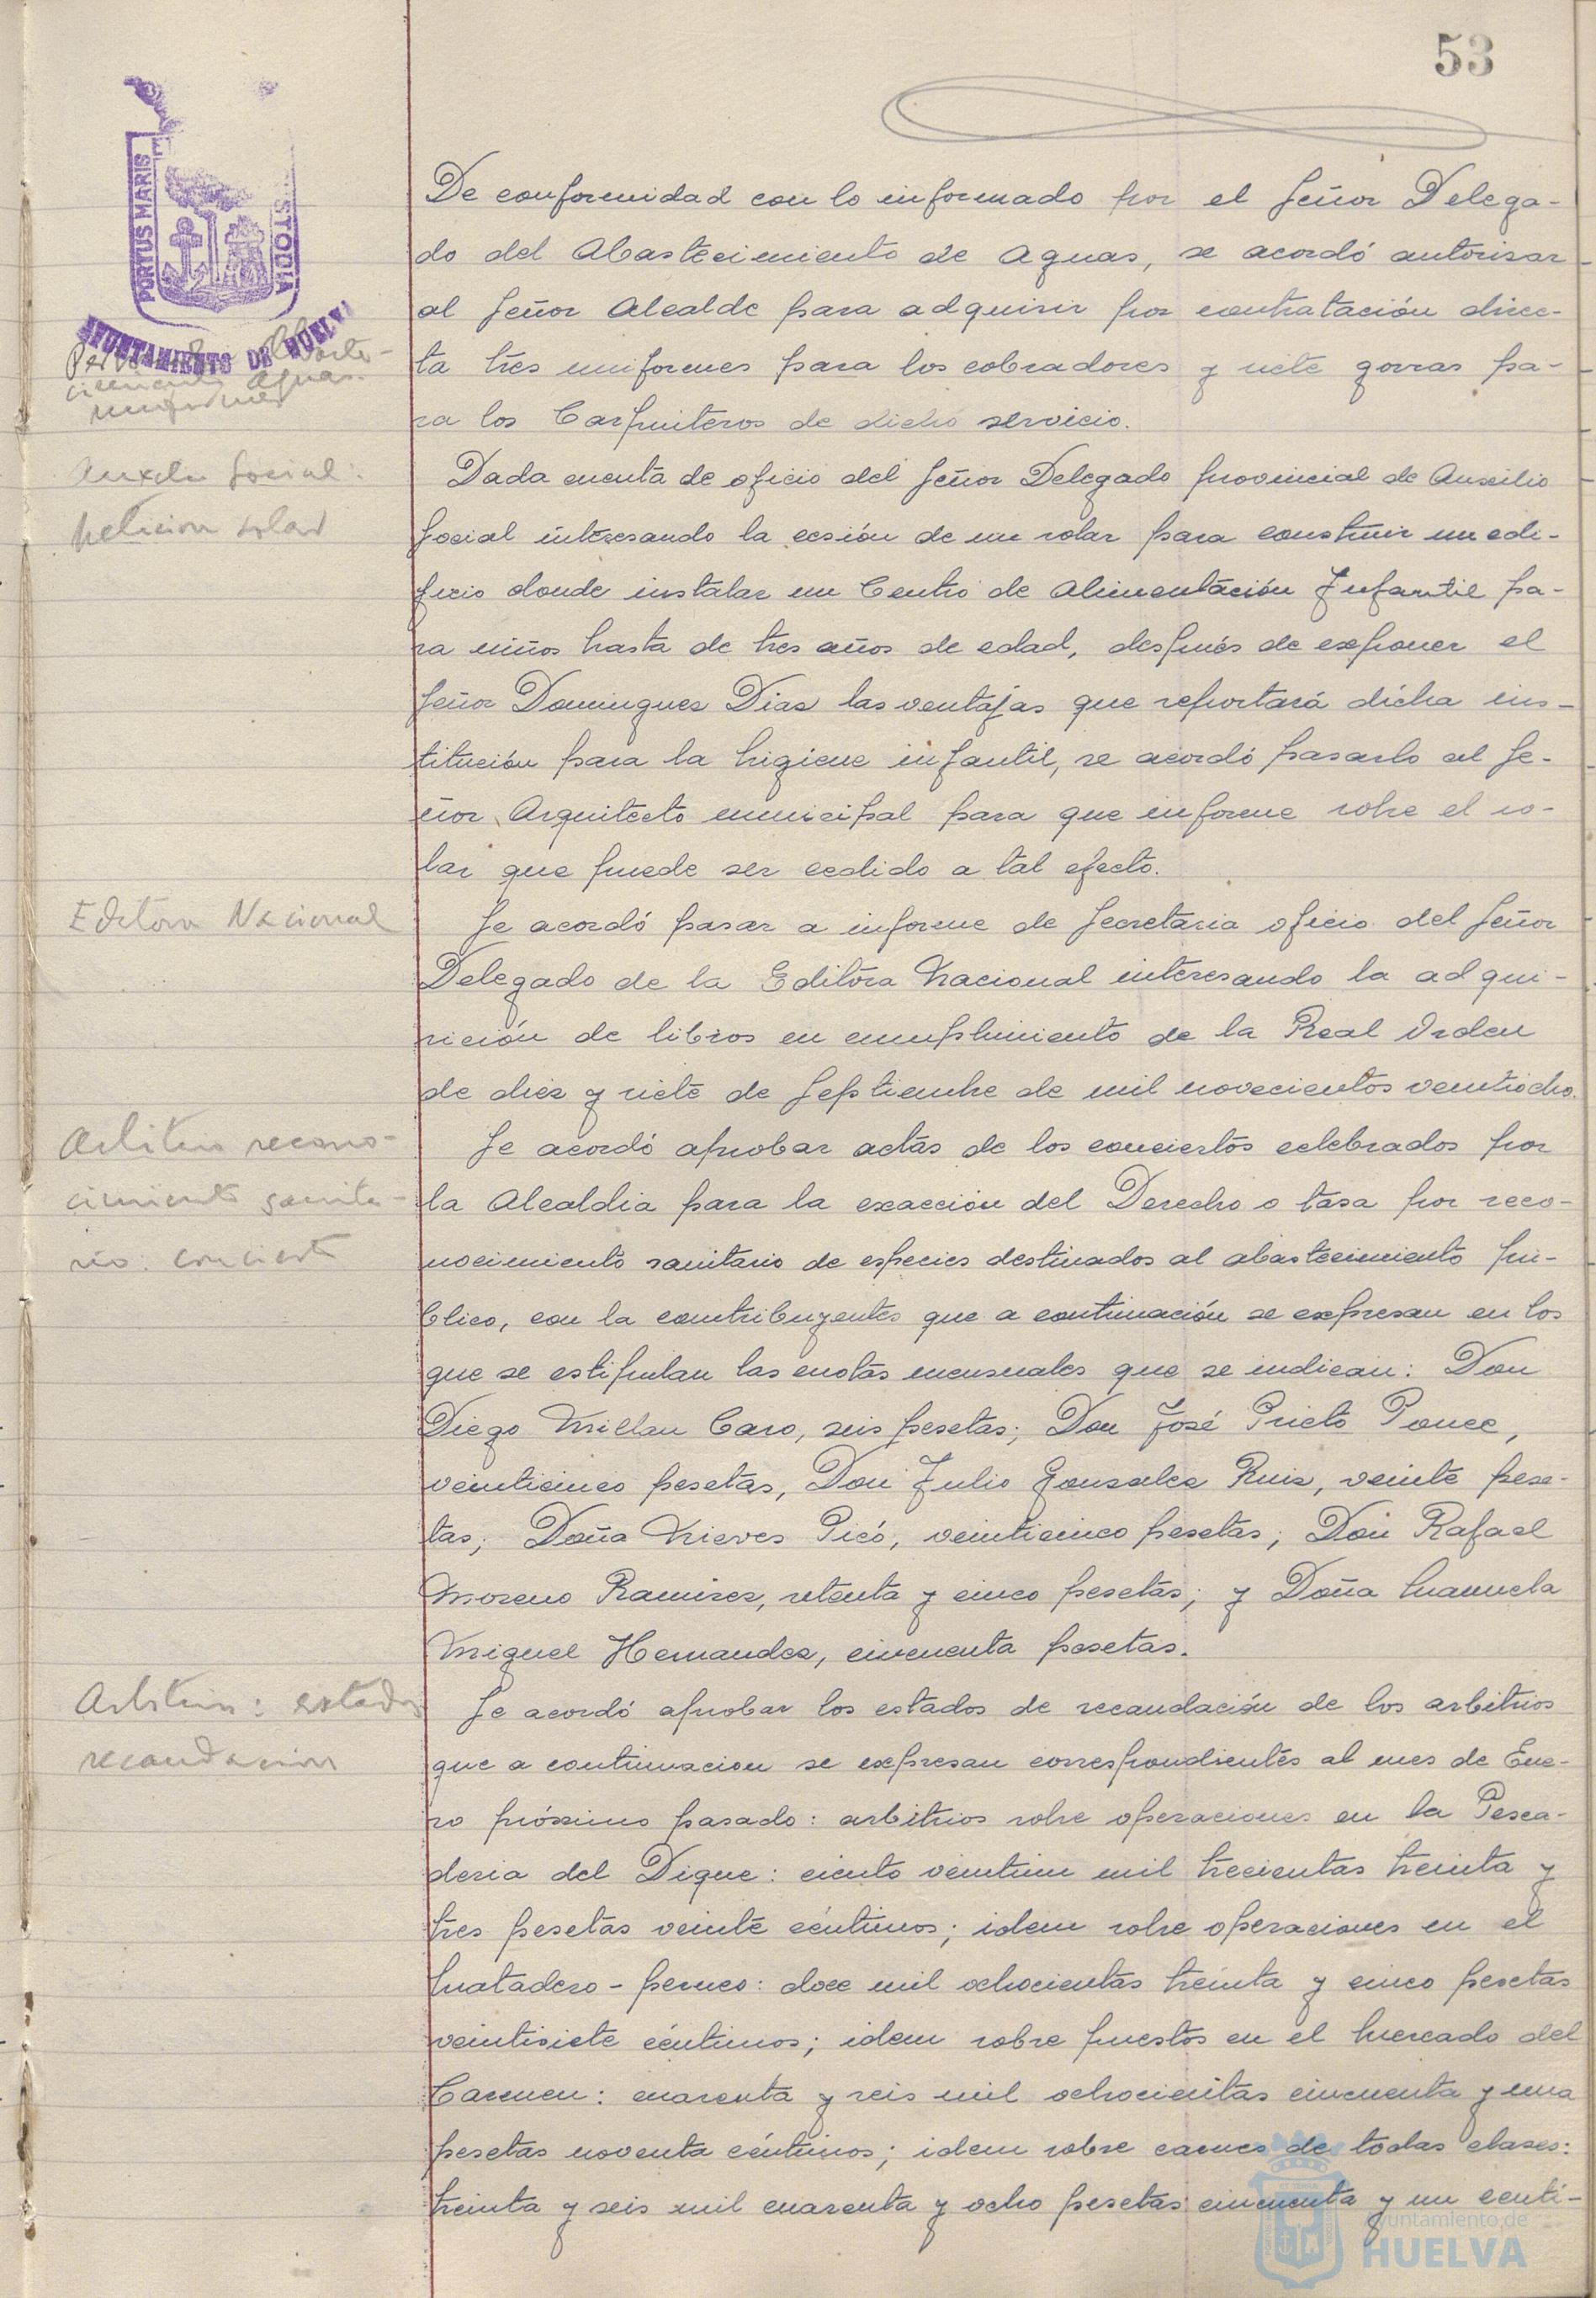 53
PORTUS MARIS
STODIA
AYUNTAMIENTO DE HUELVA
De conformidad con lo informado por el Señor Delega-
do del Abastecimiento de Aguas, se acordó autorisar
al Señor Alcalde para adquirir por contratación direc-
ta tres uniformes para los cobradores y siete gorras pa-
ra los Carpinteros de dicho servicio.
Auxilio Social:
petición solar
Dada cuenta de oficio del Señor Delegado provincial de Auxilio
Social interesando la cesión de un solar para construir un edi-
ficio donde instalar un Centro de Alimentación Infantil pa-
ra niños hasta de tres años de edad, después de exponer el
Señor Dominguez Diaz las ventajas que reportará dicha ins-
titución para la higiene infantil, se acordó pasarlo al Se-
ñor Arquitecto municipal para que informe sobre el so-
lar que puede ser cedido a tal efecto.
Editora Nacional
Se acordó pasar a informe de Secretaria oficio del Señor
Delegado de la Editora Nacional interesando la adqui-
sición de libros en cumplimiento de la Real Orden
de diez y siete de Septiembre de mil novecientos veintiocho.
Arbitrio recono-
cimiento sanita-
rio: concierto
Se acordó aprobar actas de los conciertos celebrados por
la Alcaldia para la exacción del Derecho o tasa por reco-
nocimiento sanitario de especies destinados al abastecimiento pú-
blico, con la contribuyentes que a continuación se expresan en los
que se estipulan las cuotas mensuales que se indican: Don
Diego Millan Caro, seis pesetas; Don José Prieto Ponce,
veinticinco pesetas, Don Julio Gonzalez Ruiz, veinte pese-
tas; Doña Nieves Picó, veinticinco pesetas; Don Rafael
Moreno Ramirez, setenta y cinco pesetas; y Doña Manuela
Miguel Hernandez, cincuenta pesetas.
Arbitrios: estados
recaudacion
Se acordó aprobar los estados de recaudación de los arbitrios
que a continuacion se expresan correspondientes al mes de Ene-
ro próximo pasado: arbitrios sobre operaciones en la Pesca-
deria del Dique: ciento veintiun mil trecientas treinta y
tres pesetas veinte céntimos; idem sobre operaciones en el
Matadero-perneo: doce mil ochocientas treinta y cinco pesetas
veintisiete céntimos; idem sobre puestos en el Mercado del
Carmen: cuarenta y seis mil ochocientas cincuenta y una
pesetas noventa céntimos; idem sobre carnes de todas clases:
treinta y seis mil cuarenta y ocho pesetas cincuenta y un centi-
Ayuntamiento de
HUELVA